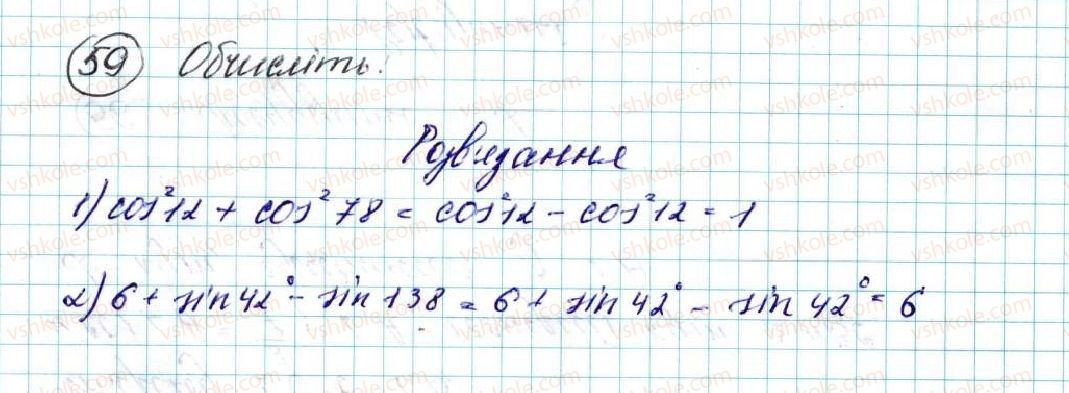 59 Обчисліть:
Розв'язання
1) cos²12 + cos²78 = cos²12 - cos²12 = 1
2) 6 + sin 42° - sin 138 = 6 + sin 42° - sin 42° = 6